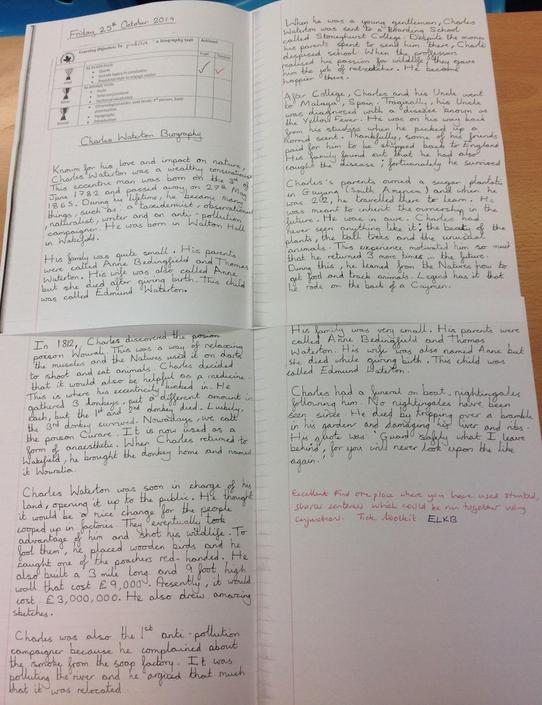 Friday 25th October 2019
Learning Objective: To publish a biography text
Charles Waterton Biography
Known for his love and impact on nature,
Charles Waterton was a wealthy
This eccentric man was born on the 3rd of
June 1782 and passed away on 27th
1865. During his lifetime, he became many
things, such as: a taxidermist,
naturalist, writer and an anti-pollution
campaigner. He was born in Walton Hall
in Wakefield.
His family was quite small. His parents
were called Anne Bedingfield and Thomas
Waterton. His wife was also called Anne
but she died after giving birth. This child
was called Edmund Waterton.
When he was a young gentleman, Charles
Waterton was sent to a Boarding School
called Stoneyhurst College. Despite the money
his parents spent to send him there, Charles
despised school. When the professor
realised his passion for wildlife, they gave
him the job of ratcatcher. He became
happier there.
After College, Charles and his Uncle went
to Malaga, Spain. Tragically, his Uncle
was diagnosed with a disease known as
the Yellow Fever. He was on his way back
from his studies when he picked up a
scent. Thankfully, some of his friends
paid for him to be shipped back to England
His family found out that he had also
caught the disease; fortunately he survived
Charles's parents owned a sugar
in Guyana (South America) and when he
was 202, he travelled there to learn. He
was meant to inherit the ownership in the
future. He was in awe. Charles had
never seen anything like it: the beauty of the
plants, the tall trees and the unusual
animals. This experience motivated him so much
that he returned 3 more times in the future.
During this, he learned from the Natives how to
get food and track animals. Legend has it that
he rode on the back of a Cayman.
In 1812, Charles discovered the poison
poison Wourali. This was a way of relaxing
the muscles and the Natives used it on darts
to shoot and eat animals. Charles decided
that it would also be helpful as a medicine
This is where his eccentricity kicked in. He
gathered 3 donkeys, put a different amount in
each, but the 1st and 2nd donkey died. Luckily,
the 3rd donkey survived. Nowadays, we call
the poison Curare. It is now used as a
form of anaesthetic. When Charles returned to
Wakefield, he brought the donkey home and named
it Wouralia.
Charles Waterton was soon in charge of his
land, opening it up to the public. He thought
it would be a nice change for the people
cooped up in factories. They eventually took
advantage of him and shot his wildlife. To
fool them, he placed wooden birds and he
caught one of the poachers red-handed. He
also built a 3 mile long and 9 foot high
wall that cost £9,000. it would
cost £3,000,000. He also drew amazing
sketches.
Charles was also the 1st anti-pollution
campaigner because he complained about
the smoke from the soap factory. It was
polluting the river and he argued that much
that it was relocated.
His family was very small. His parents were
called Anne Bedingfield and Thomas
Waterton. His wife was also named Anne but
she died while giving birth. This child was
called Edmund Waterton.
Charles had a funeral on boat, nightingales
following him. No nightingales have been
seen since. He died by tripping over a bramble
in his garden and damaging his liver and ribs.
His quote was: 'Guard safely what I leave
behind, for you will never look upon the like
again.
Excellent. Find one place where you have used stunted,
shorter sentences which could be run together using
conjunctions. Tick toolkit ELKB